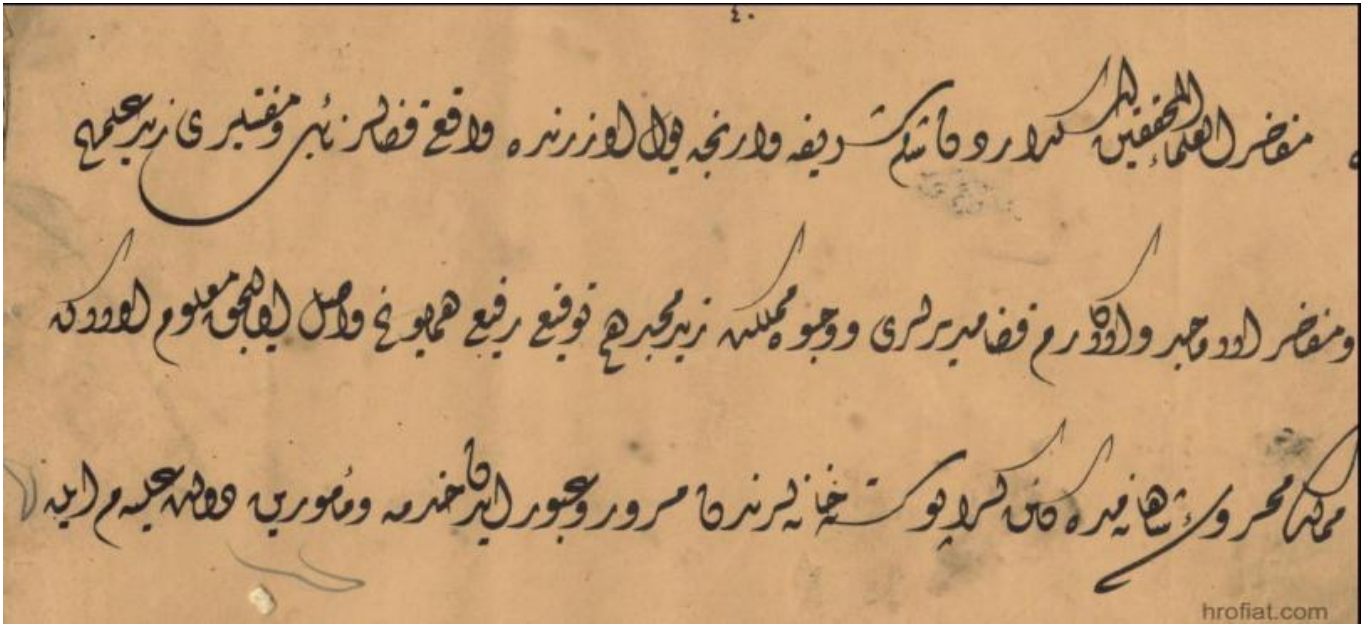 ٤٠
مفاخر العلماء المحققين اسكداردن شام شريفه وارنجه يول اوزرنده واقع قضالر نائب ومفتيلرى زيد علمهم
ومفاخر الاماجد والاكارم قضا مديرلرى ووجوه مملكت زيد مجدهم توقيع رفيع همايونم واصل اوليجق معلوم اولا كه
ممالك محروسهٔ شاهانه مده كائن كرا پوسته خانه لرندن مرور وعبور ايدن خدمه ومأمورين دولت عليه م ايله
hrofiat.com